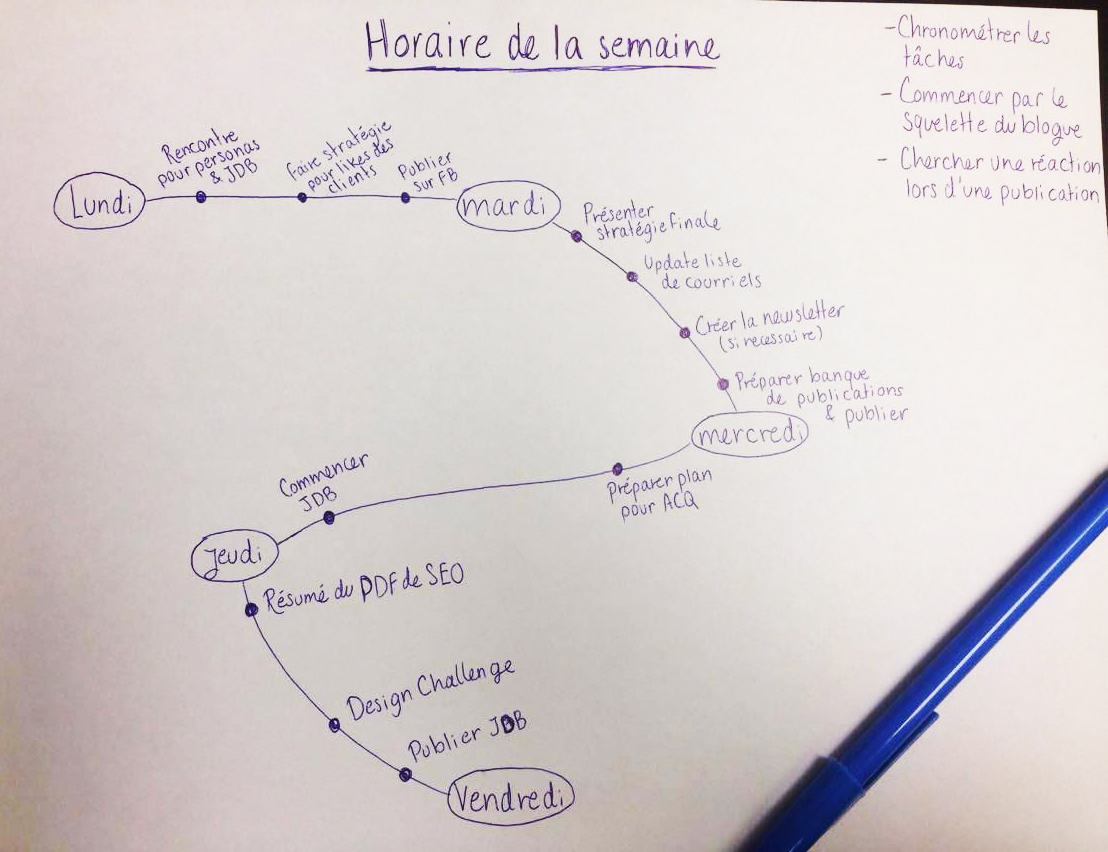 Horaire de la semaine
-Chronométrer les
tâches
- Commencer par le
squelette du blogue
- Chercher une réaction
lors d'une publication
Lundi
Rencontre
pour personas
& JDB
Faire stratégie
pour likes des
clients
Publier
sur FB
mardi
Présenter
stratégie finale
Update liste
de courriels
Créer la newsletter
(si necessaire)
Préparer banque
de publications
& publier
mercredi
Préparer plan
pour ACQ
Commencer
JDB
jeudi
Résumé du PDF de SEO
Design Challenge
Publier JDB
Vendredi